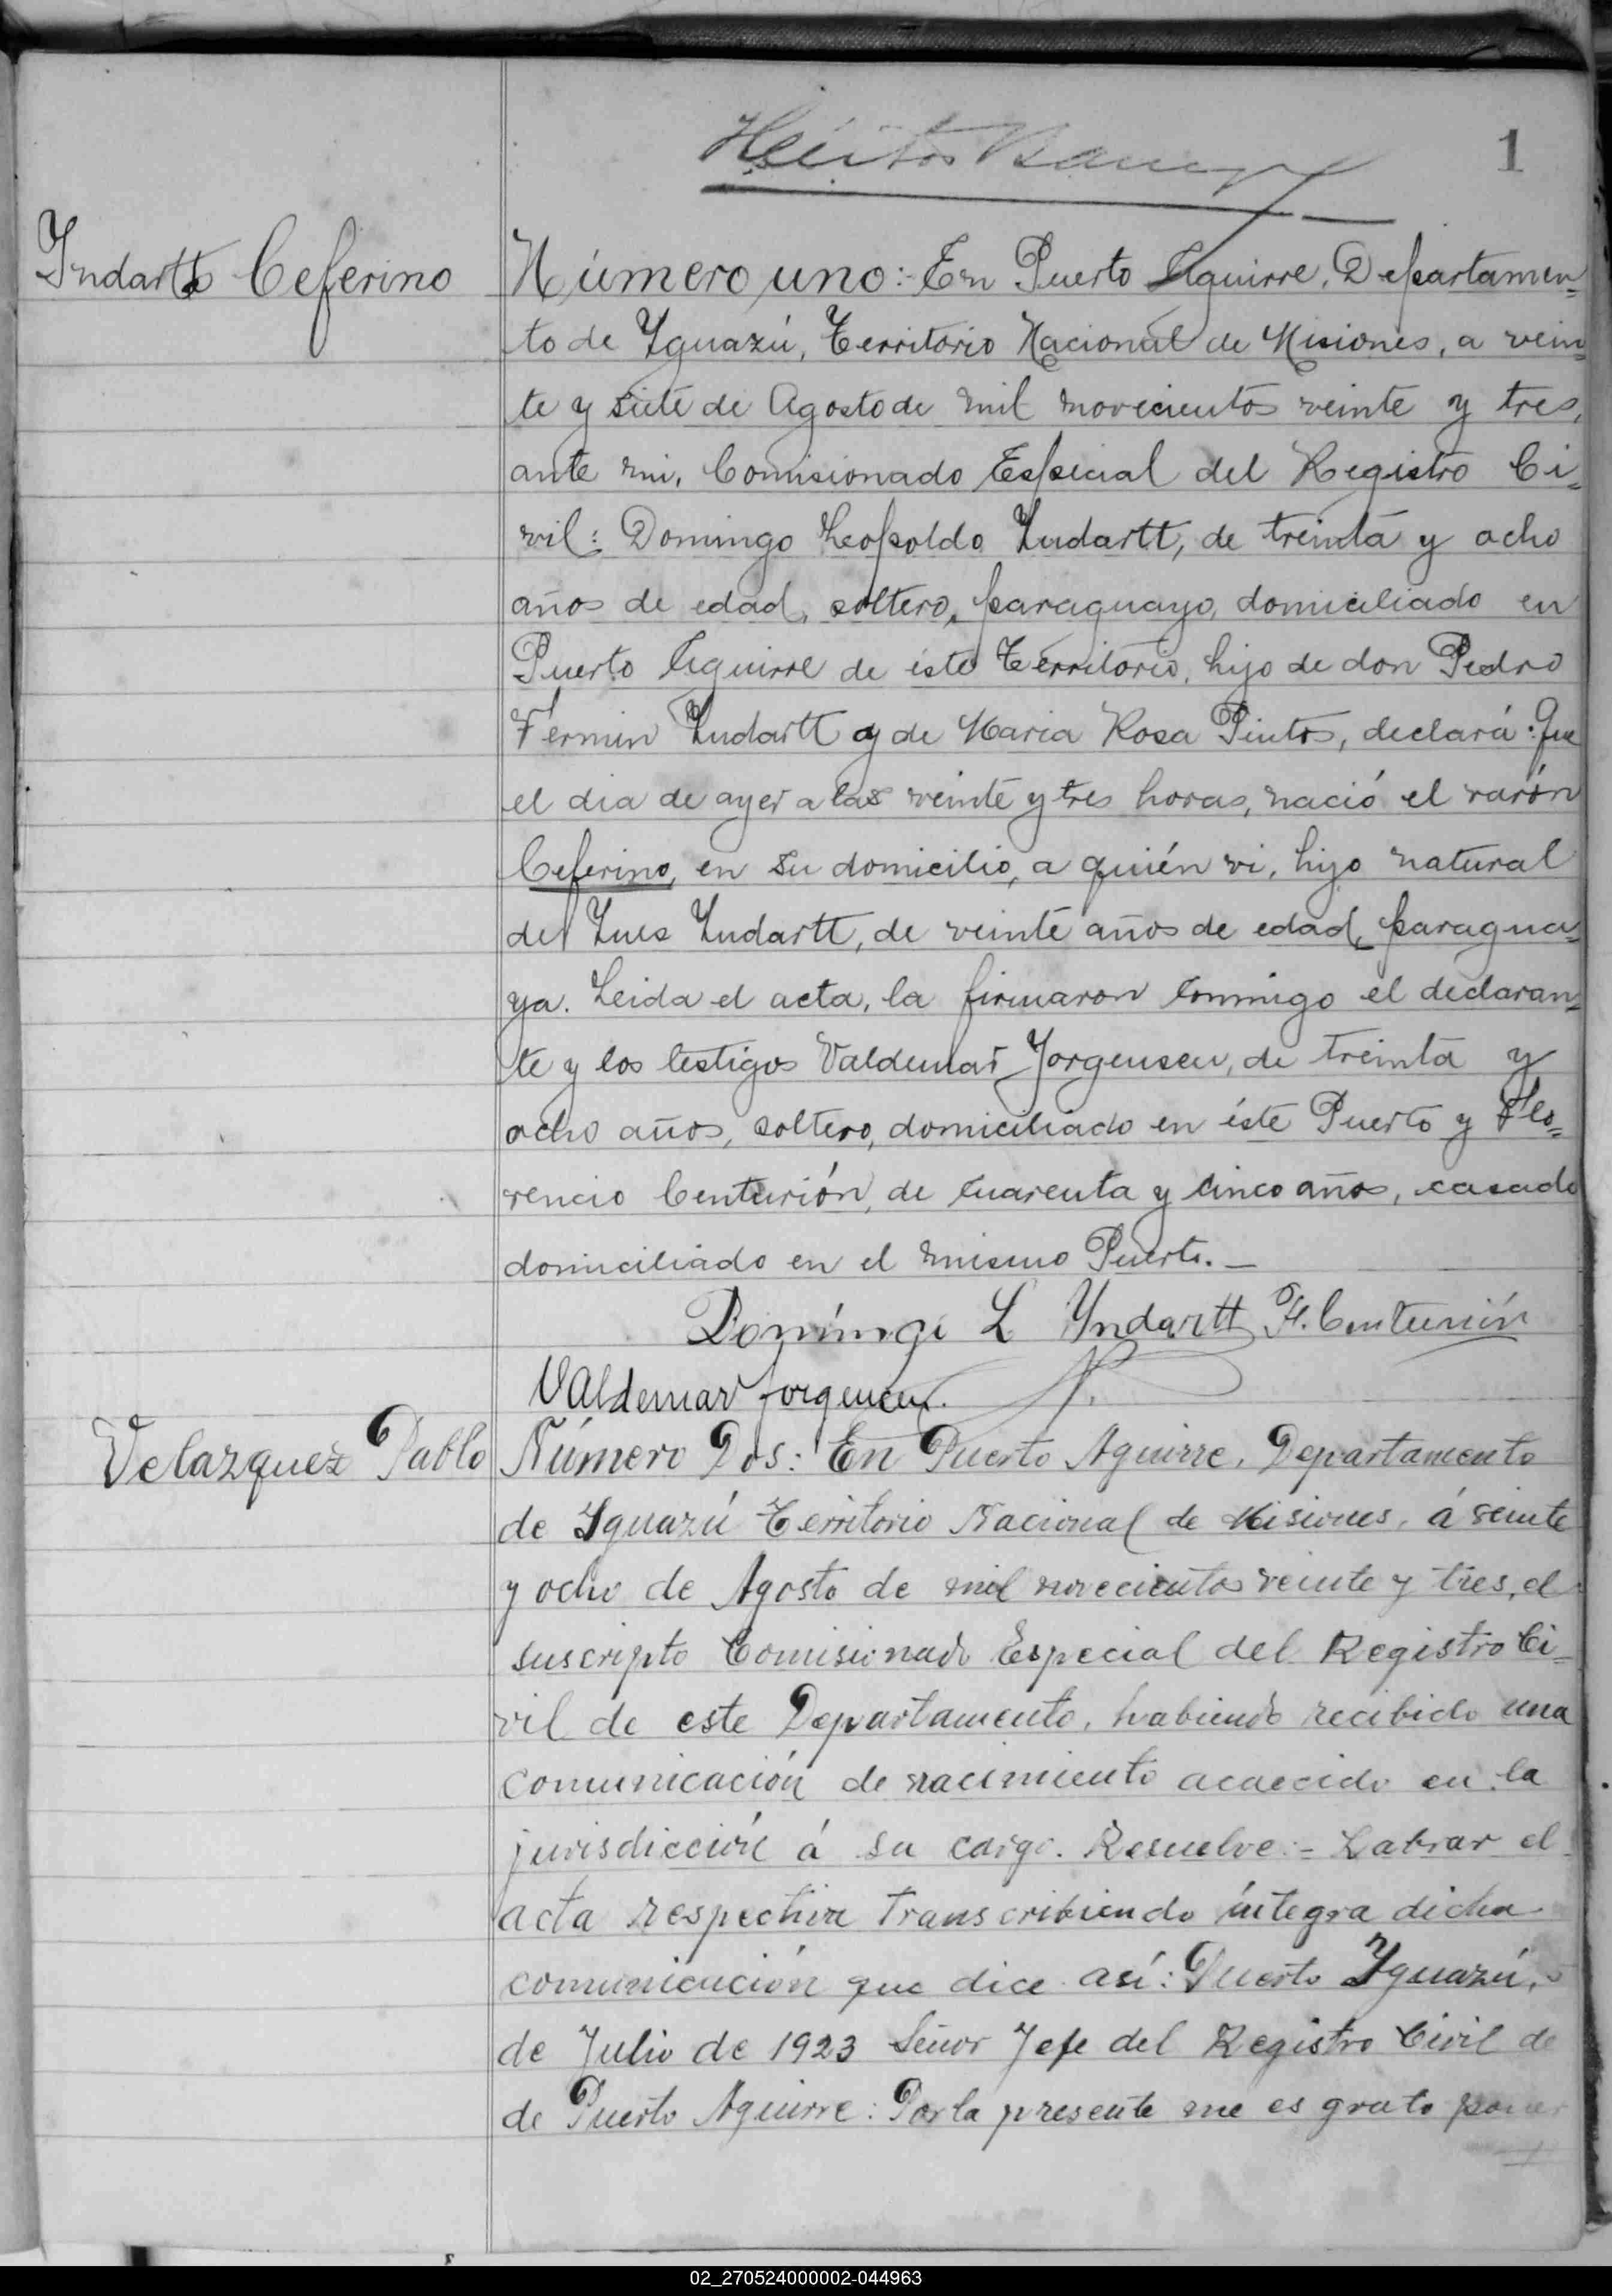 1
Yndartt Ceferino
Número uno:- En Puerto Aguirre, Departamen=
to de Yguazú, Territorio Nacional de Misiones, a vein=
te y siete de Agosto de mil novecientos veinte y tres,
ante mi, Comisionado Especial del Registro Ci=
vil: Domingo Leopoldo Yndartt, de treinta y ocho
años de edad, soltero, paraguayo, domiciliado en
Puerto Aguirre de éste Territorio, hijo de don Pedro
Fermin Yndartt y de Maria Rosa Pinto, declará: Que
el dia de ayer a las veinte y tres horas, nació el varón
Ceferino, en su domicilio, a quién vi, hijo natural
de Yndartt, de veinte años de edad, paragua=
ya. Leida el acta, la firmaron conmigo el declaran=
te y los testigos Valdemar Jorgensen, de treinta y
ocho años, soltero, domiciliado en éste Puerto y Flo=
rencio Centurión, de cuarenta y cinco años, casado
domiciliado en el mismo Puerto.—
Domingo L Yndartt F. Centurión
Valdemar Jorgensen.
Velazquez Pablo
Número Dos: En Puerto Aguirre, Departamento
de Yguazú Territorio Nacional de Misiones, á veinte
y ocho de Agosto de mil novecientos veinte y tres, el
suscripto Comisionado Especial del Registro Ci=
vil de este Departamento, habiendo recibido una
comunicación de nacimiento acaecido en la
jurisdicción á su cargo. Resuelve:= Labrar el
acta respectiva transcribiendo íntegra dicha
comunicación que dice así: Puerto Yguazú,
de Julio de 1923 Señor Jefe del Registro Civil de
de Puerto Aguirre: Por la presente me es grato poner
02_270524000002-044963